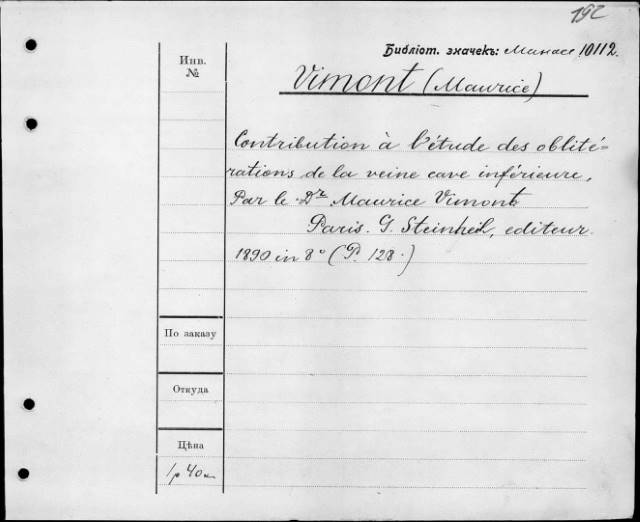 192
Библіот. значекъ: Манасс 10112.
Инв.
№
Vimont (Maurice)
Contribution à l'étude des oblité-
rations de la veine cave inférieure,
Par le Dr Maurice Vimont
Paris. G. Steinheil, editeur.
1890 in 8° (P. 128.)
По заказу
Откуда
Цѣна
1 р 40 к